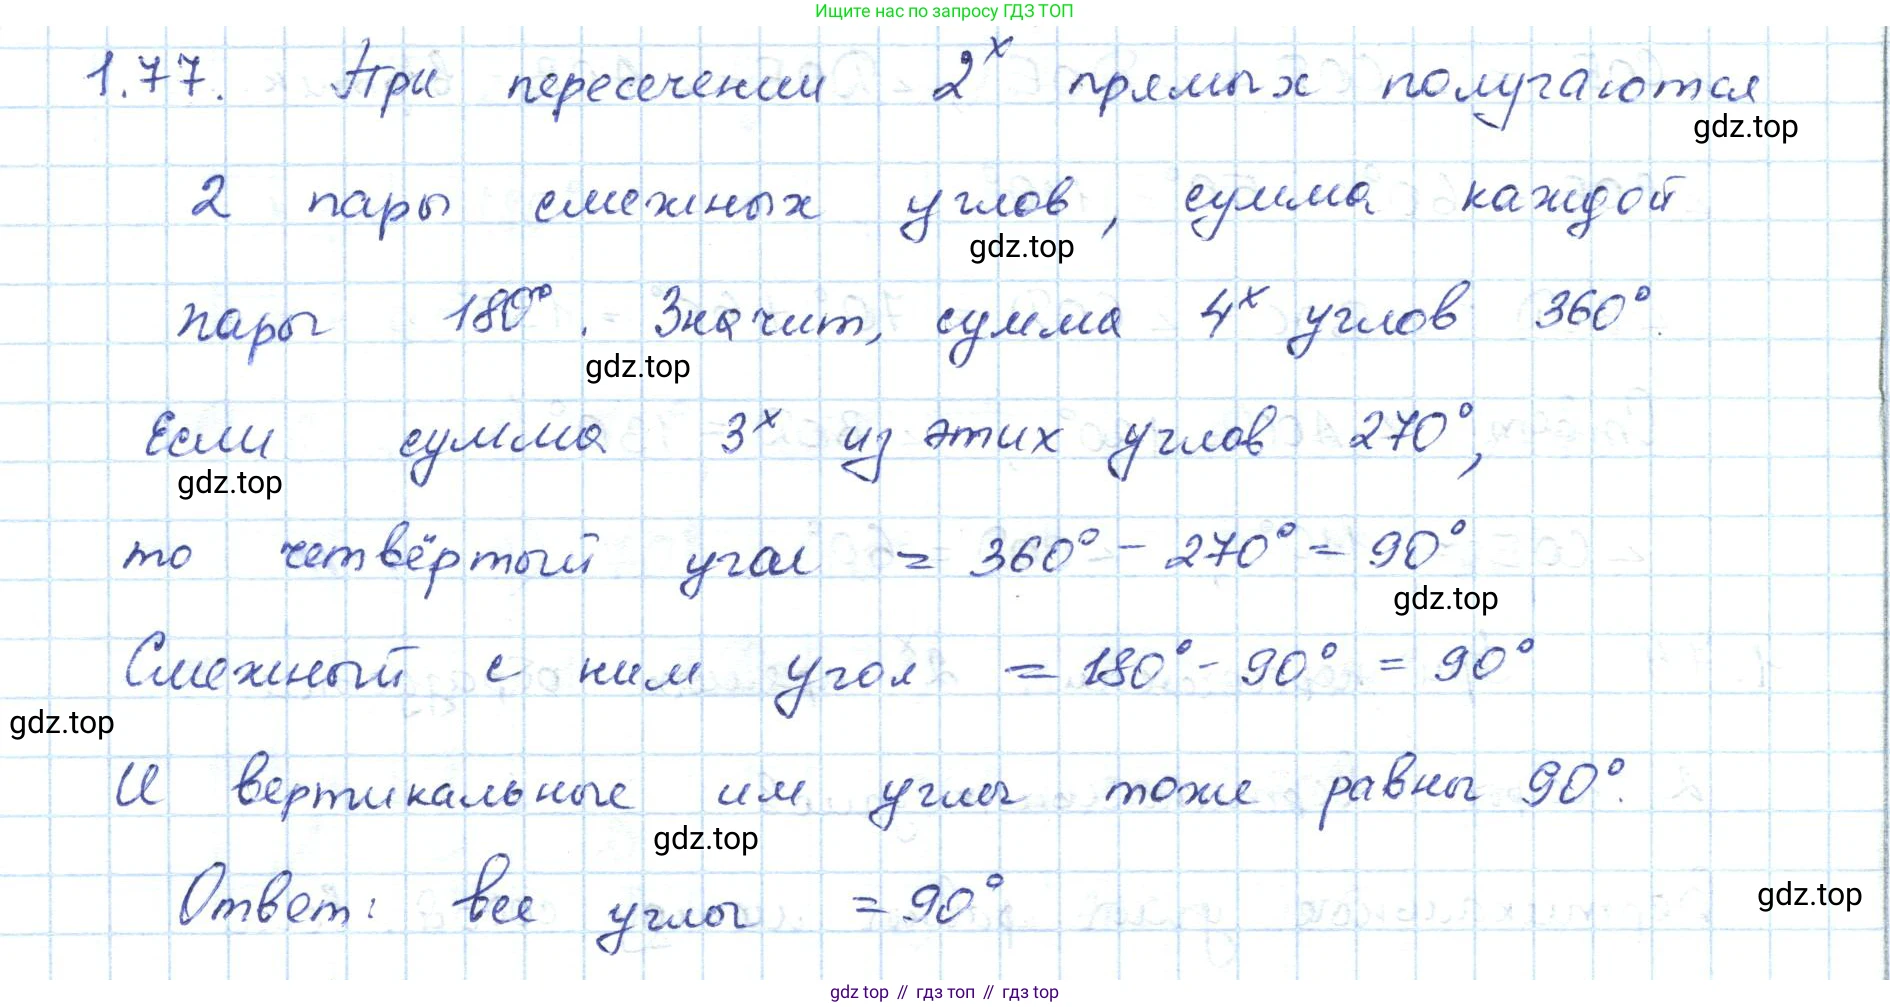 Ищите нас по запросу ГДЗ ТОП
1.77. При пересечении 2х прямых получаются
gdz.top
2 пары смежных углов, сумма каждой
gdz.top
пары 180°. Значит, сумма 4х углов 360°.
gdz.top
Если сумма 3х из этих углов 270°,
gdz.top
то четвёртый угол = 360° - 270° = 90°
gdz.top
Смежный с ним угол = 180° - 90° = 90°
gdz.top
И вертикальные им углы тоже равны 90°.
gdz.top
Ответ: все углы = 90°
gdz.top
gdz top // гдз топ // гдз top